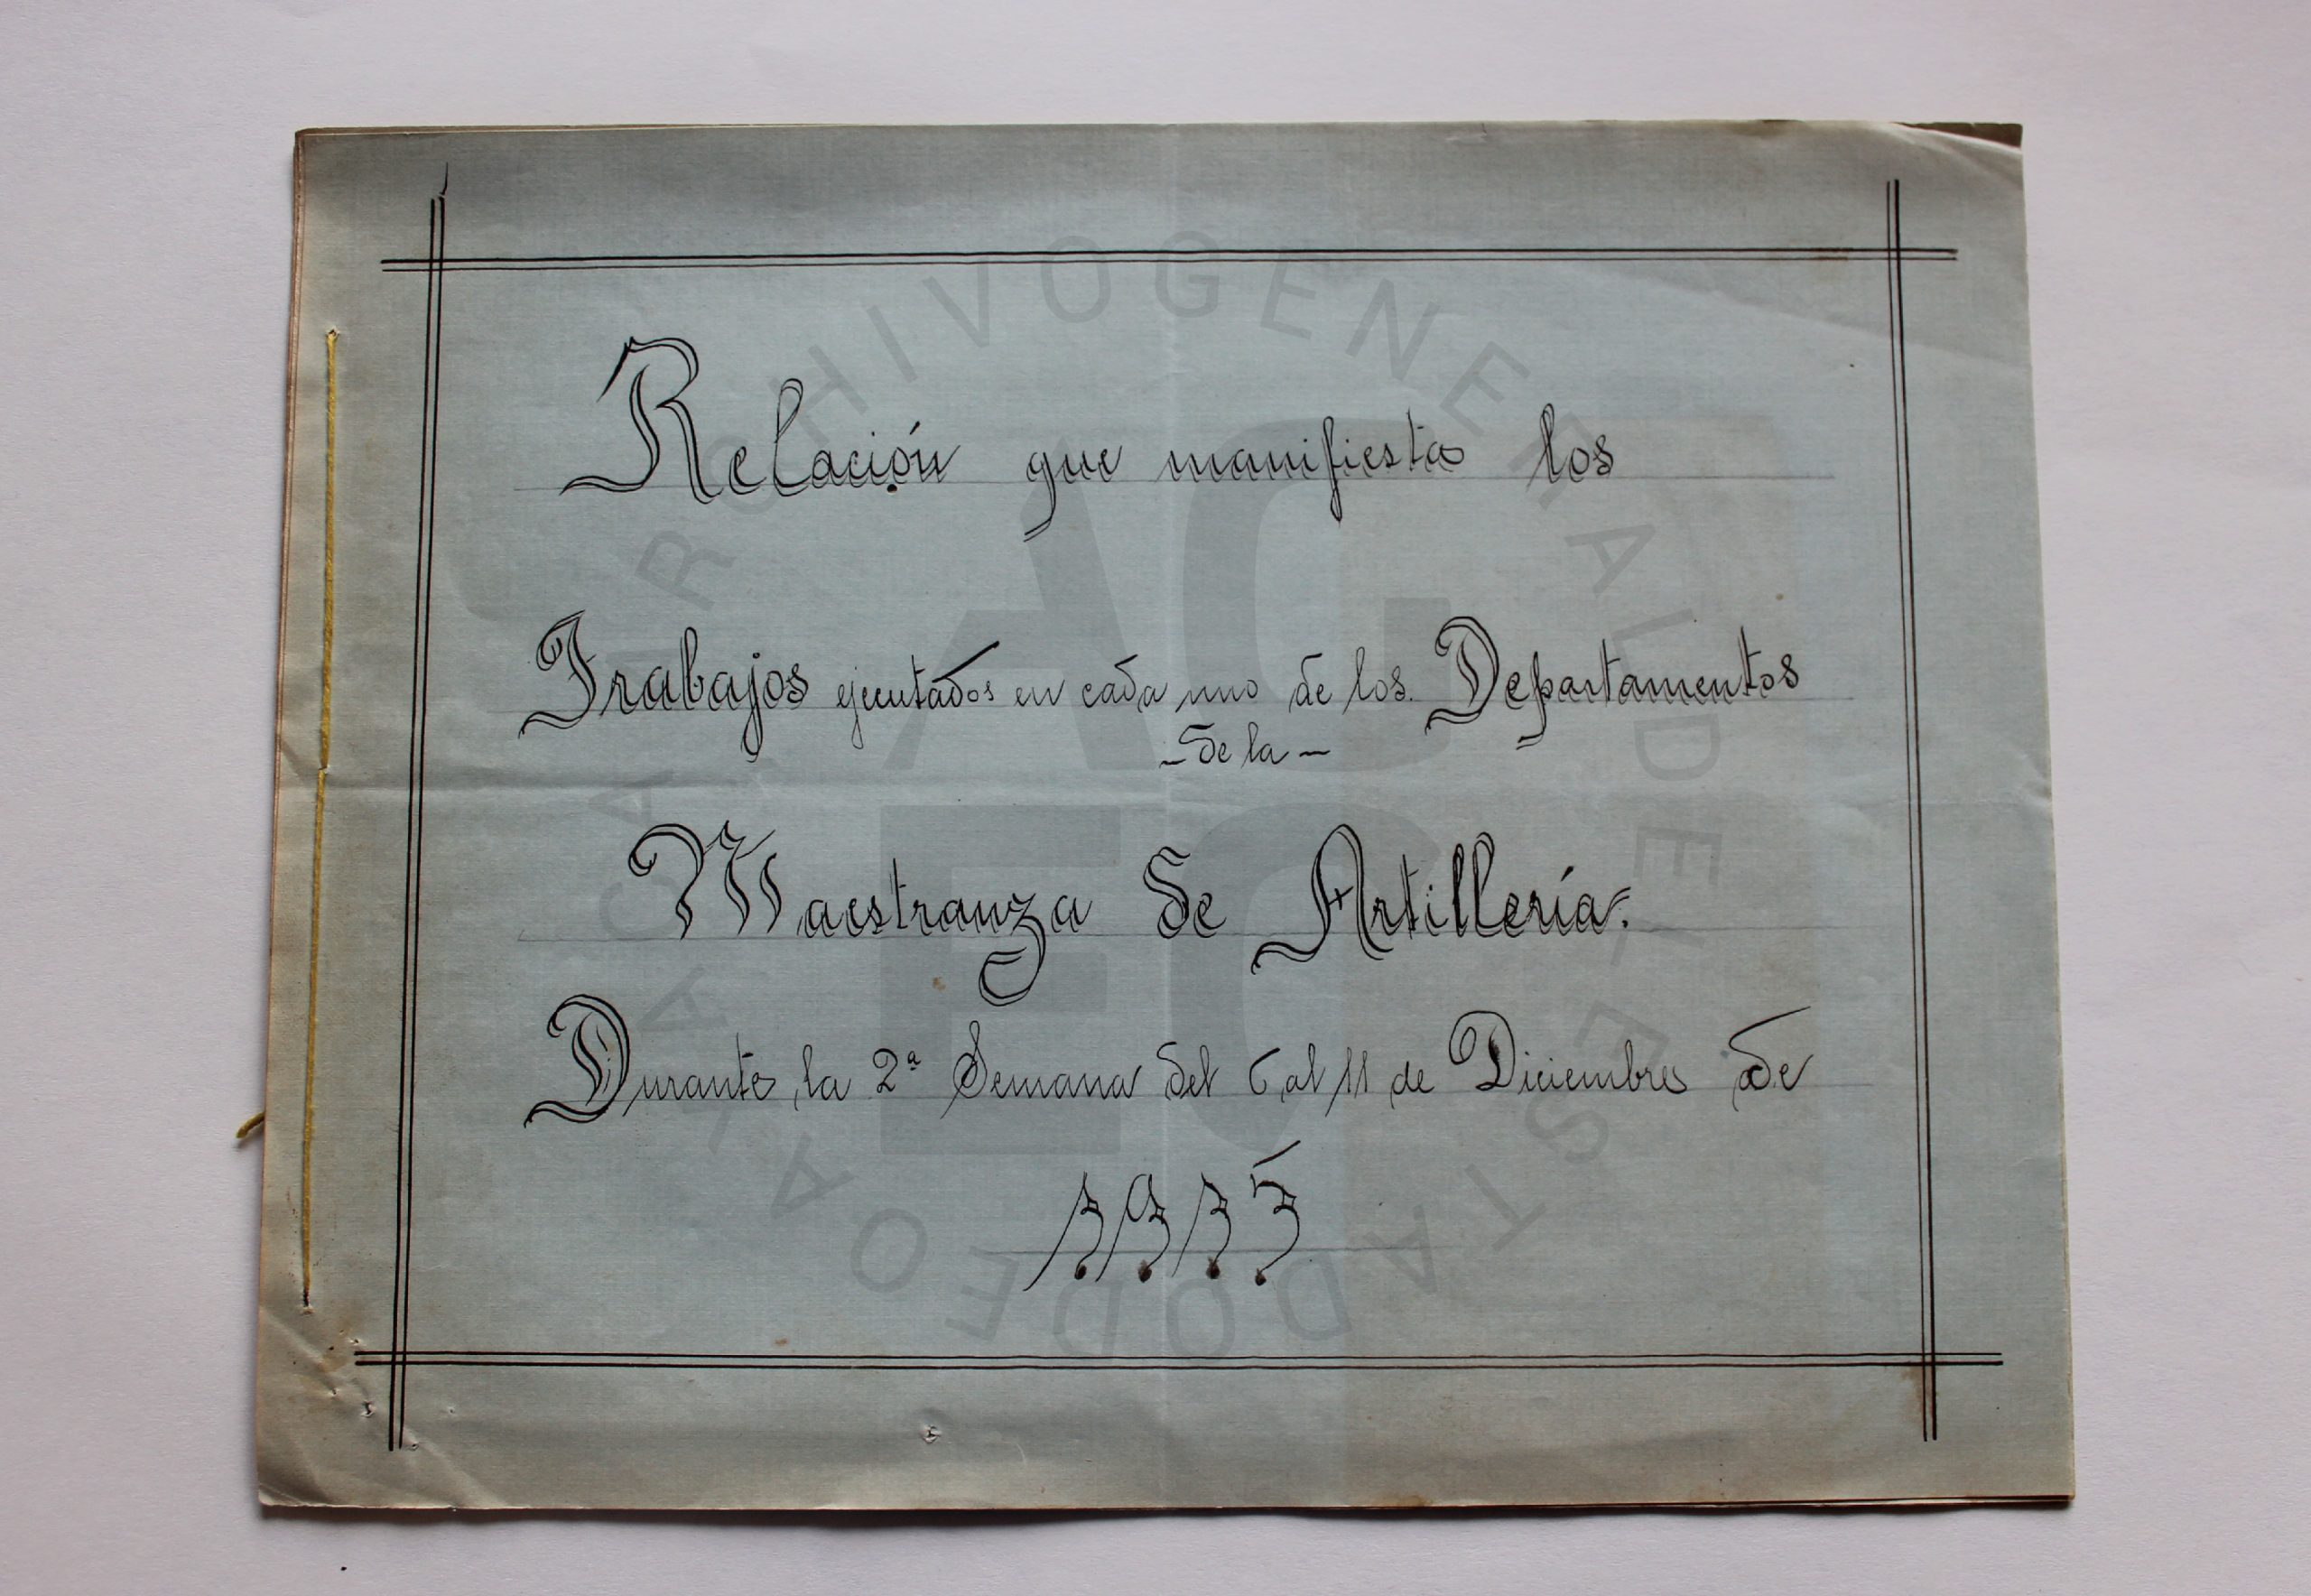 Relación que manifiesta los
Trabajos ejecutados en cada uno de los Departamentos
- de la -
Maestranza de Artillería.
Durante la 2ª Semana del 6 al 11 de Diciembre de
1915
ARCHIVO GENERAL DEL ESTADO DE OAXACA
AG
EO